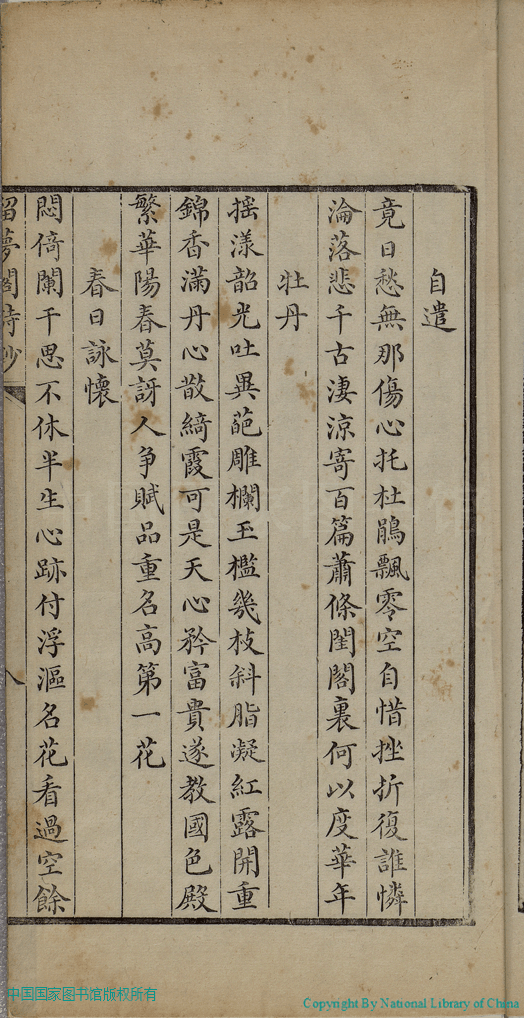 自遣
竟日愁無那傷心托杜鵑飄零空自惜挫折復誰憐
淪落悲千古淒涼寄百篇蕭條閨閣裏何以度華年
牡丹
搖漾韶光吐異葩雕欄玉檻幾枝斜脂凝紅露開重
錦香滿丹心散綺霞可是天心矜富貴遂教國色殿
繁華陽春莫訝人争賦品重名高第一花
春日詠懷
悶倚闌干思不休半生心跡付浮漚名花看過空餘
留夢閣詩鈔
八
中国国家图书馆版权所有
Copyright By National Library of China